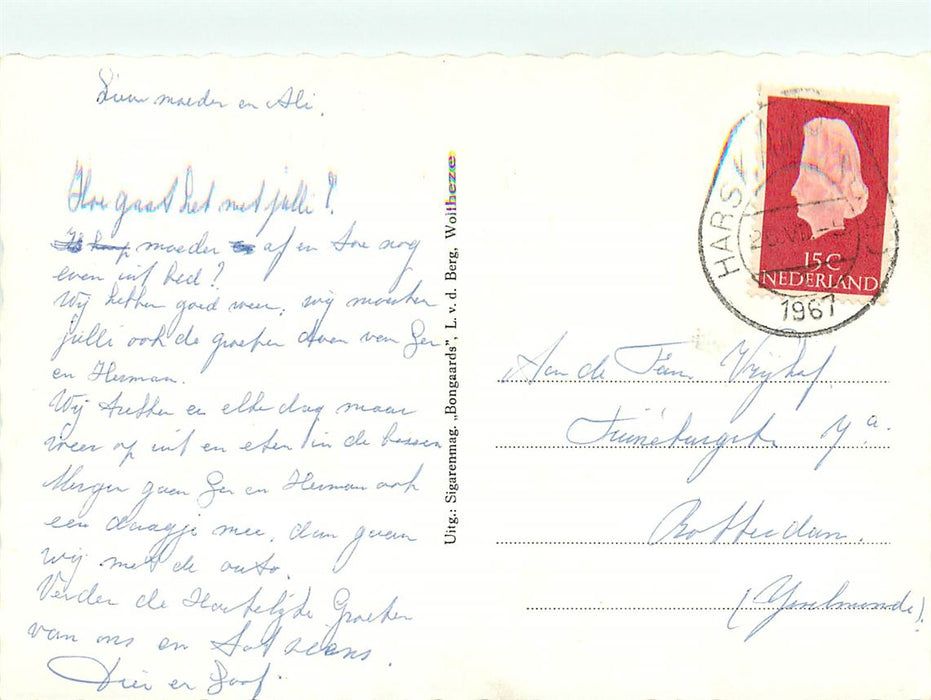 Lieve moeder en Ali.
Hoe gaat het met julli?
moeder af en toe nog
even uit bed?
Wij hebben goed weer, wij moeten
julli ook de groeten doen van Ger
en Herman.
Wij trekken er elke dag maar
weer op uit en eten in de bossen
Morgen gaan Ger en Herman ook
een daagje mee, dan gaan
wij met de auto.
Verder de Hartelijke Groeten
van ons en tot ziens.
Uitg.: Sigarenmag. „Bongaards”, L. v. d. Berg, Wolfheze
HARS
1967
15C
NEDERLAND
Aan de Fam. Vrijhof
7a.
Rotterdam.
(Ysselmonde).